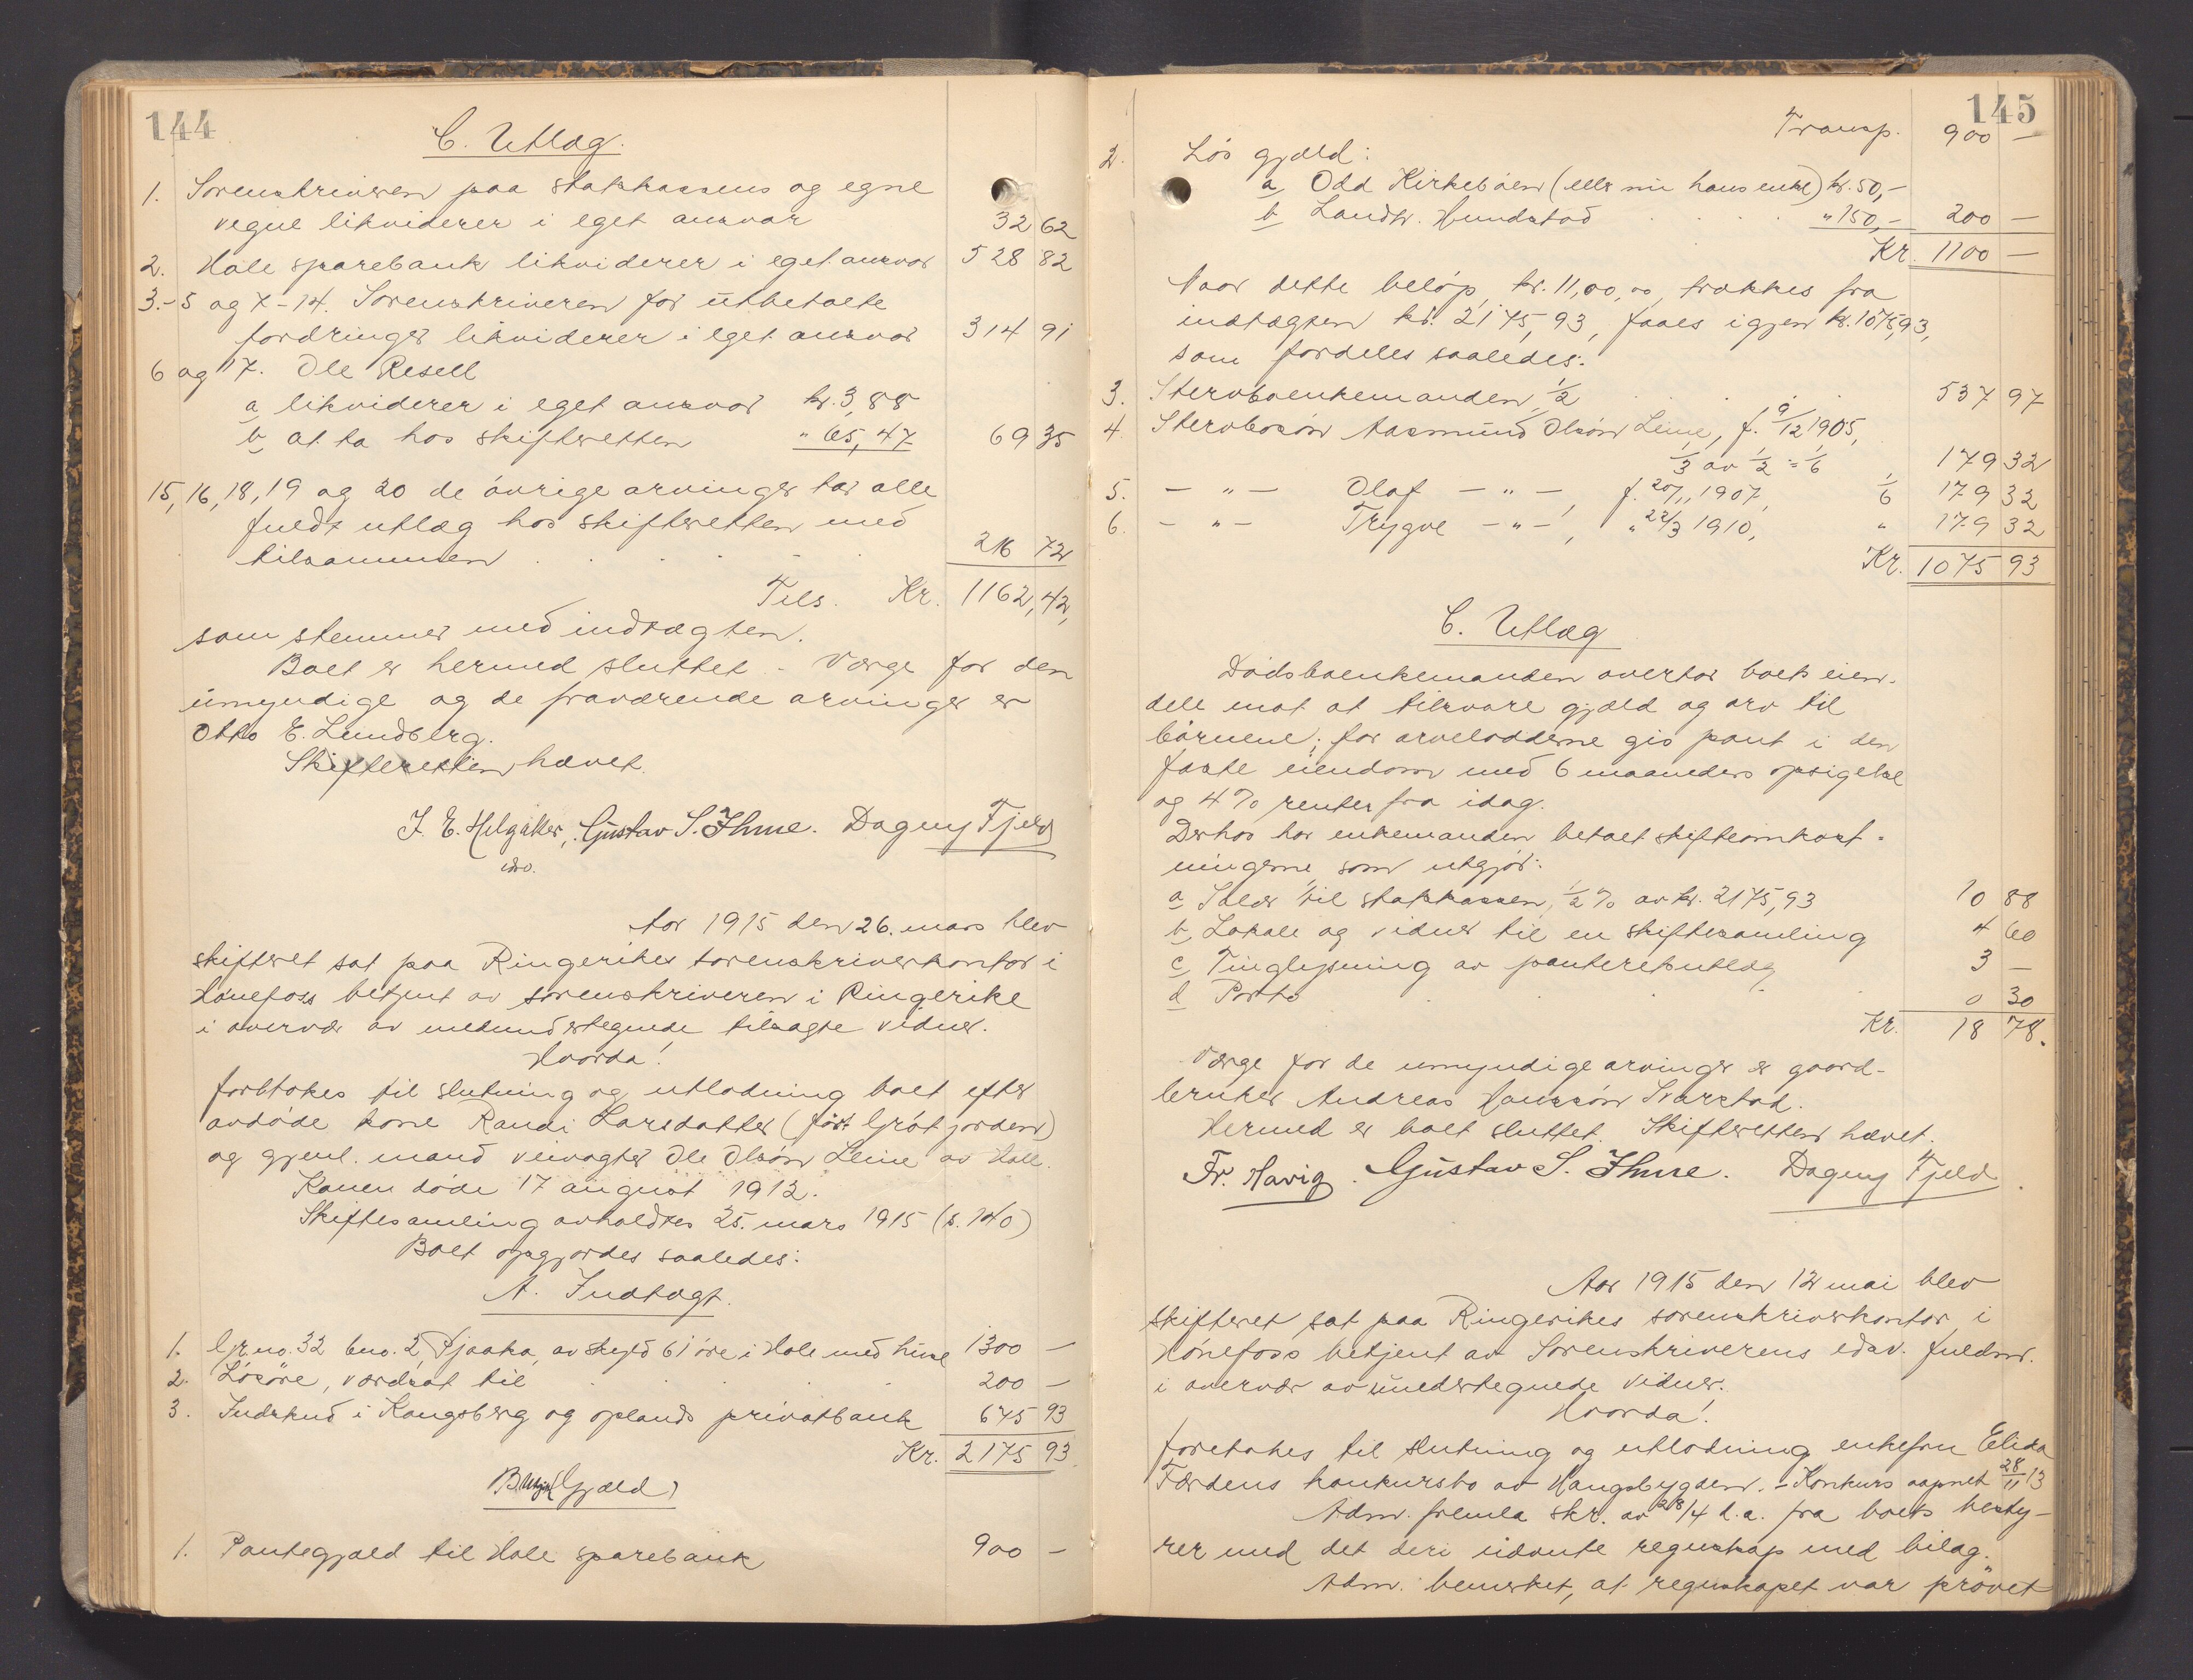 144
C. Utlæg.
1. Sorenskriveren paa statskassens og egne
vegne likviderer i eget ansvar 32 62
2. Hole sparebank likviderer i eget ansvar 528 82
3.-5 og 7-14. Sorenskriveren for utbetalte
fordringer likviderer i eget ansvar 314 91
6 og 17. Ole Resell
a, likviderer i eget ansvar kr. 3,88
b at ta hos skifteretten " 65,47 69 35
15, 16, 18, 19 og 20 de øvrige arvinger har alle
fuldt utlæg hos skifteretten med
tilsammen . . . . 216 72
Tils. Kr. 1162,42,
som stemmer med indtægten.
Boet er hermed sluttet. - Værge for den
umyndige og de fraværende arvinger er
Otto E. Lundberg.
Skifteretten hævet.
J. E. Helgaker, Gustav S. Ihme. Dagny Fjeld
edsv.
Aar 1915 den 26. mars blev
skifteret sat paa Ringerikes sorenskriverkontor i
Hönefoss betjent av sorenskriveren i Ringerike
i overvær av medundertegnede tilsagte vidner.
Hvorda!
foretokes til slutning og utlodning boet efter
avdøde kone Randi Larsdatter (født Grøtjorden)
og gjenl. mand veivogter Ole Olsön Leine av Hole.
Konen døde 17 august 1912.
Skiftesamling avholdtes 25. mars 1915 (s. 140)
Boet opgjordes saaledes:
A. Indtægt.
1. Gr.no. 32 bno. 2, Pjaaka, av skyld 61 öre i Hole med huse 1300 —
2. Lösöre, værdsat til . . . . 200 —
3. Indskud i Kongsberg og oplands privatbank 675 93
Kr. 2175 93.
B. Utgift (Gjæld)
1. Pantegjæld til Hole sparebank 900 —
145
Transp. 900 —
2. Løs gjæld:
a, Odd Kirkebøen (eller nu hans enke) kr. 50,-
b Landh. Hundstad . . . . " 150,- 200 —
Kr. 1100 —
Naar dette beløp, kr. 11,00,00, trækkes fra
indtægten kr. 2175,93, faaes igjen kr. 1075,93,
som fordeles saaledes:
3. Stervboenkemanden, 1/2 . . . 537 97
4. Stervbosön Aasmund Olsön Leine, f. 9/12 1905,
1/3 av 1/2 = 1/6 179 32
5. — " — Olaf — " —, f. 20/11 1907, 1/6 179 32
6. — " — Trygve — " —, " 22/3 1910, " 179 32
Kr. 1075 93
C. Utlæg
Dödsboenkemanden overtar boets eien-
dele mot at tilsvare gjæld og arv til
börnene; for arvelodderne gis pant i den
faste eiendom med 6 maaneders opsigelse
og 4% renter fra idag.
Derhos har enkemanden betalt skifteomkost-
ningerne, som utgjör:
a Skat til statskassen, 1/2 % av kr. 2175,93 10 88
b, Lokale og vidner til en skiftesamling 4 60
c, Tinglysning av panteretsutlæg 3 —
d Porto . . . . 0 30
Kr. 18 78.
Værge for de umyndige arvinger er gaard-
bruker Andreas Hanssön Svarstad.
Hermed er boet sluttet. Skifteretten hævet.
Fr. Havig. Gustav S. Ihme. Dagny Fjeld.
Aar 1915 den 12 mai blev
skifteret sat paa Ringerikes sorenskriverkontor, i
Hönefoss betjent av Sorenskriverens edsv. fuldm.
i overvær av undertegnede vidner.
Hvorda!
foretokes til slutning og utlodning enkefru Elida
Færdens konkursbo av Haugsbygden. - Konkurs aapnet 28/11 13
Adm. fremla skr. av 28/4 d.a. fra boets besty-
rer med det deri nævnte regnskap med bilag.
Adm. bemerket, at regnskapet var prövet